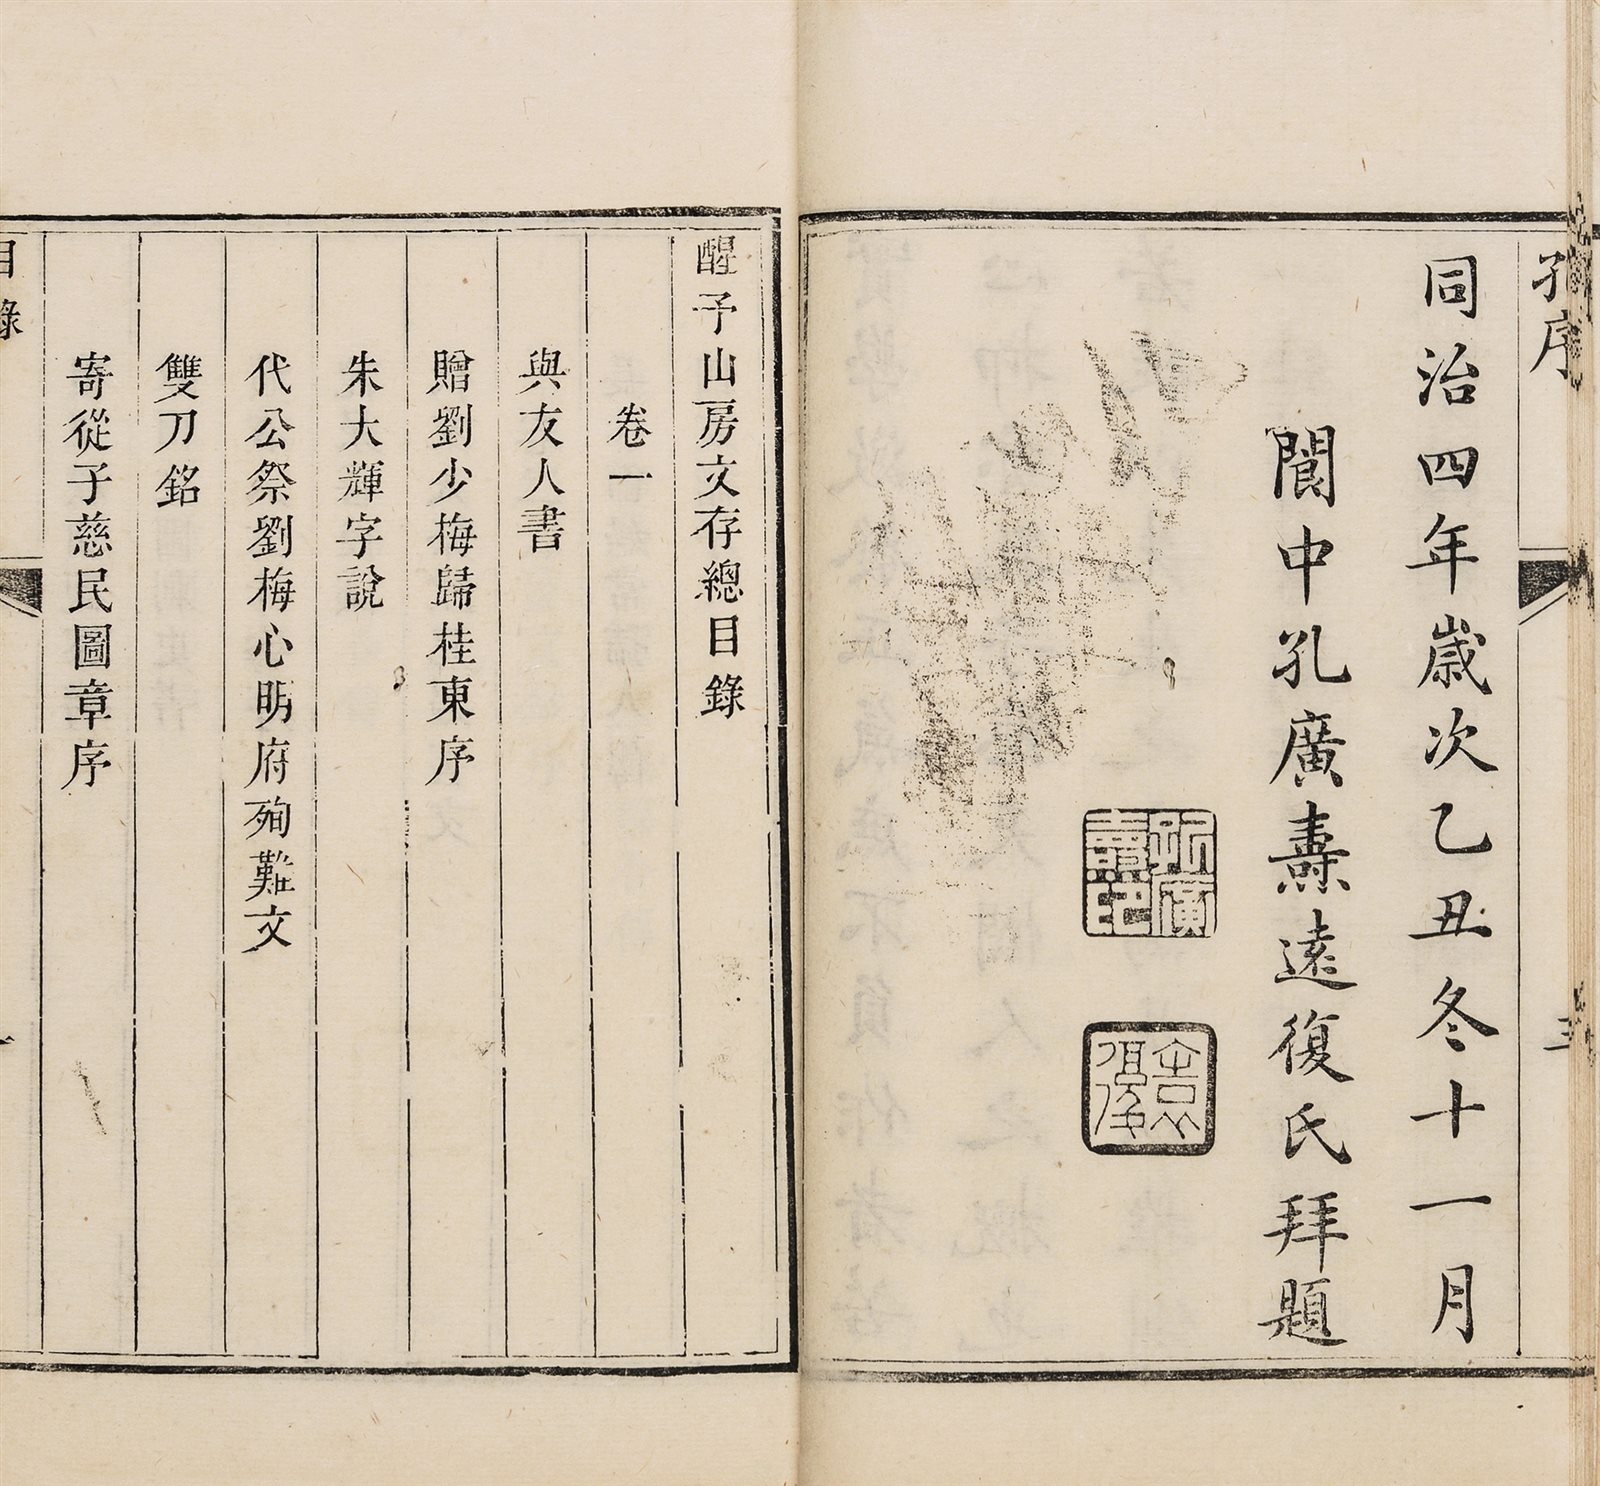 孔序
三
同治四年歲次乙丑冬十一月
閬中孔廣燾遠復氏拜題
孔廣燾印
醒予山房文存總目錄
卷一
與友人書
贈劉少梅歸桂東序
朱大輝字說
代公祭劉梅心明府殉難文
雙刀銘
寄從子慈民圖章序
目錄
一